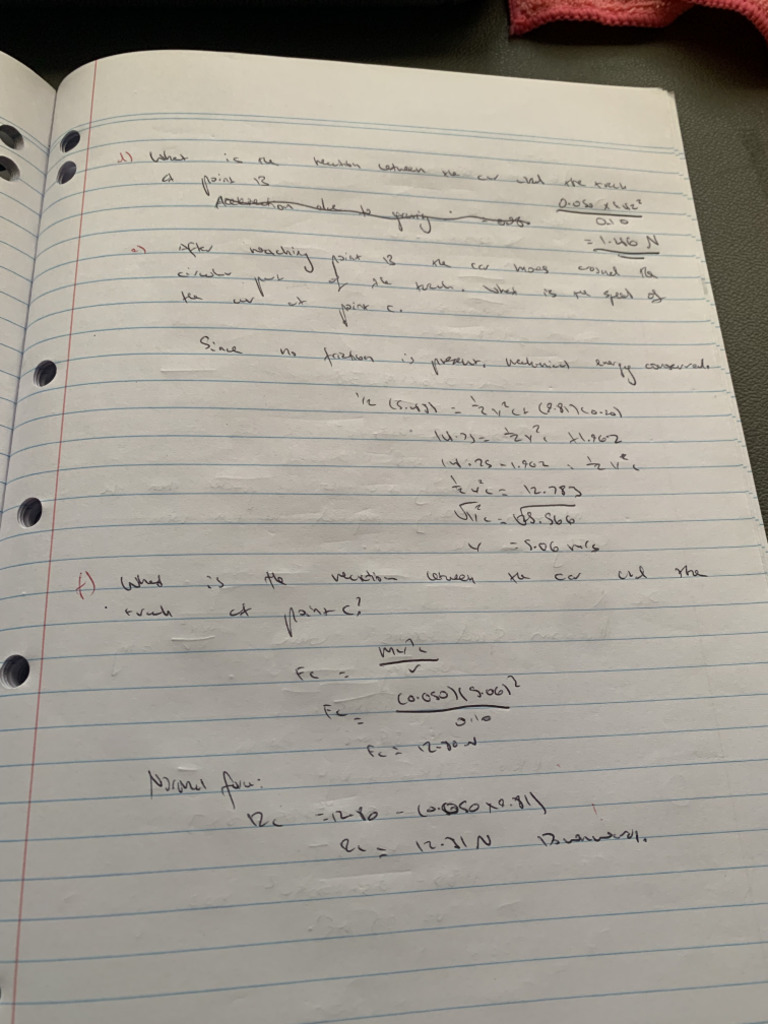 d) What is the reaction between the car and the track
at point B
Acceleration due to gravity = 0.050 × 5.42²
0.10
= 1.46 N
e) After reaching point B the car moves around the
circular part of the track. What is the speed of
the car at point C.
Since no friction is present, mechanical energy conserved.
1/2 (5.43) = ½v²c + (9.81)(0.20)
14.75 = ½v²c + 1.962
14.75 - 1.962 = ½v²c
½v²c = 12.783
√v²c = √25.566
v = 5.06 m/s
f) What is the reaction between the car and the
track at point C?
Fc = mv²c
r
Fc = (0.050)(5.06)²
0.10
Fc = 12.80 N
Normal force:
Rc = 12.80 - (0.050 × 9.81)
Rc = 12.31 N Downwards.